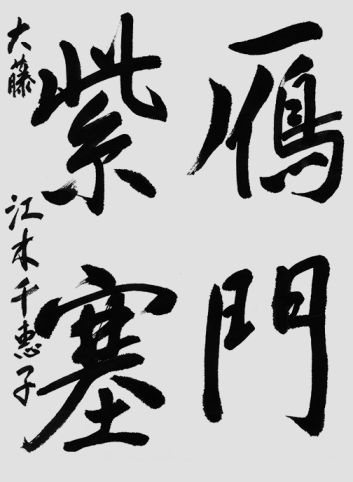 雁門
紫塞
大藤 江木千恵子